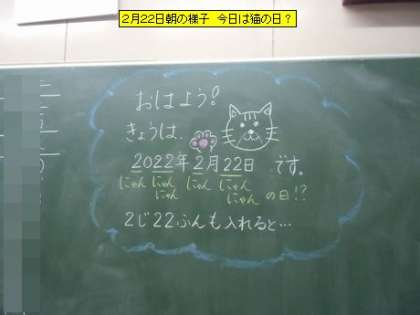 2月22日朝の様子　今日は猫の日？
おはよう!
きょうは、
2022年2月22日 です。
にゃん にゃん にゃん にゃん
にゃん にゃん の日!?
2じ22ふんも入れると…